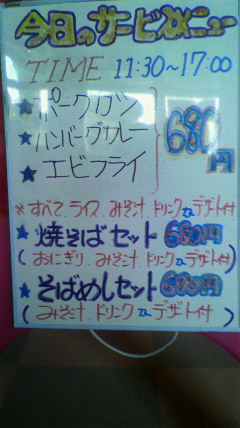 今日のサービスメニュー
TIME 11:30~17:00
★ポークカツ
★ハンバーグカレー
★エビフライ
680円
※すべて.ライス.みそ汁.ドリンクorデザート付
★焼そばセット 680円
(おにぎり.みそ汁.ドリンクorデザート付)
★そばめしセット 680円
(みそ汁.ドリンクorデザート付)